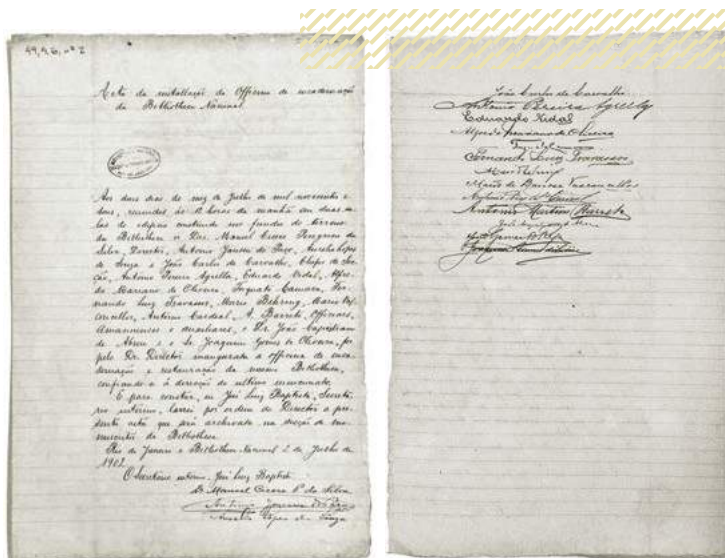 49,9,6, nº 2
Acta da installação da Officina de encadernação
da Bibliotheca Nacional
Aos dous dias do mez de Julho de mil novecentos e
dous, reunidos ás 11 horas da manhã em duas sa-
las do edificio construido nos fundos do terreno
da Bibliotheca os Drs. Manoel Cicero Peregrino da
Silva, Director, Antonio Jansen do Paço, Aurelio Lopes
de Souza e João Carlos de Carvalho, Chefes de Sec-
ção, Antonio Pereira Agrella, Eduardo Vidal, Alfre-
do Mariano de Oliveira, Camara, Fer-
nando Luiz Travassos, Mario Behring, Mario Vas-
concellos, Antonio Cardial, A. Barreto, Officiaes,
Amanuenses e auxiliares, o Dr. João Capistrano
de Abreu e o Sr. Joaquim Gomes de Oliveira, foi
pelo Dr. Director inaugurada a officina de enca-
dernação e restauração da mesma Bibliotheca,
confiando-a á direcção do ultimo mencionado.
E para constar, eu José Luiz Baptista, Secreta-
rio interino, lavrei por ordem do Director a pre-
sente acta que será archivada na secção de ma-
nuscriptos da Bibliotheca.
Rio de Janeiro e Bibliotheca Nacional 2 de Julho de
1902.
O Secretario interino, José Luiz Baptista
Dr. Manoel Cicero P. da Silva
Antonio Jansen do Paço
Aurelio Lopes de Souza
João Carlos de Carvalho
Antonio Pereira Agrella
Eduardo Vidal
Alfredo Mariano de Oliveira
Fernando Luiz Travassos
Mario Behring
Mario de Vasconcellos
Antonio Martins Barreto